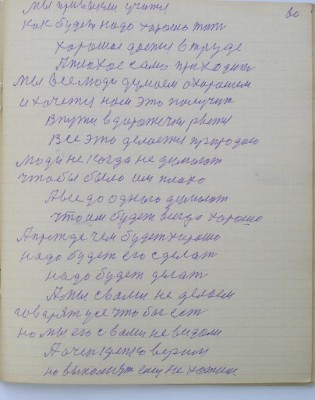 80
Мы привыкли учител
как будет надо хорошо жит
Хорошое достки в труде
А плохое само приходит
Мы все люди думаем о хорошем
и хочется нам это получит
В пути в дорожечки рвеси
Все это делается природою
Люди не когда не думают
чтобы было им плохо
А все до одного думают
что им будет всегда хорошо
А прежде чем будет хорошо
надо будет его сделат
надо будет делат
А мы с вами не делаем
говорят усе что бы ест
но мы его с вами не видем
А очем детю верим
но выполнит ему не хотим